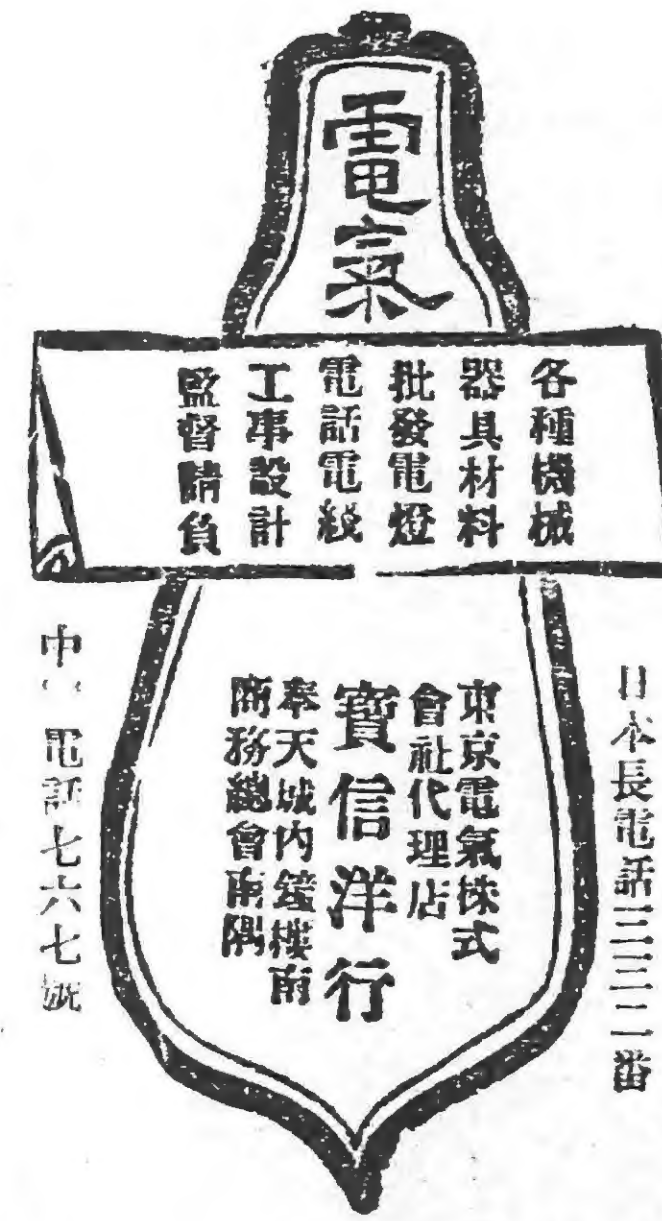 電氣
各種機械
器具材料
批發電燈
電話電綫
工事設計
監督請負
日本長電話三三二番
東京電氣株式
會社代理店
寶信洋行
奉天城内鐘樓南
商務總會南隅
中 電話七六七號